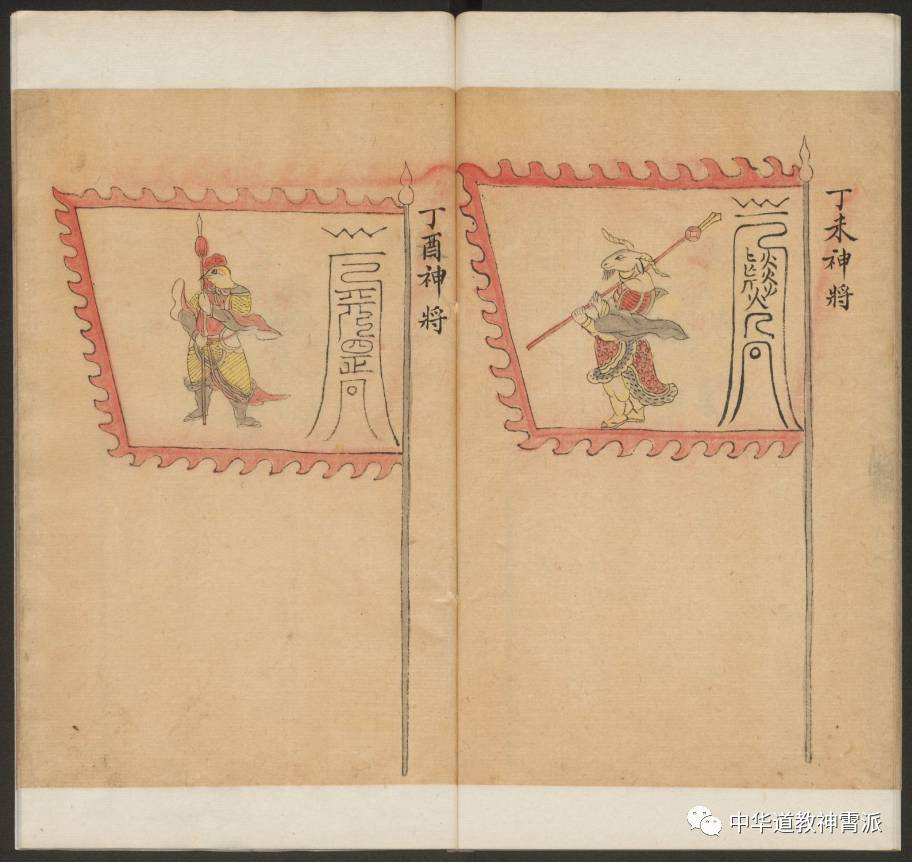 丁未神將
丁酉神將
中华道教神霄派